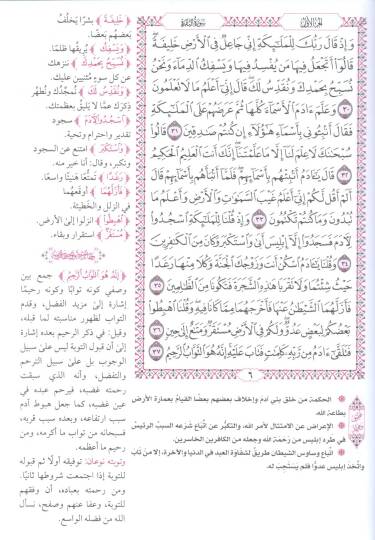 الجزء الأول
سورة البقرة
وَإِذْ قَالَ رَبُّكَ لِلْمَلَٰٓئِكَةِ إِنِّى جَاعِلٌ فِى ٱلْأَرْضِ خَلِيفَةً
قَالُوٓا۟ أَتَجْعَلُ فِيهَا مَن يُفْسِدُ فِيهَا وَيَسْفِكُ ٱلدِّمَآءَ وَنَحْنُ
نُسَبِّحُ بِحَمْدِكَ وَنُقَدِّسُ لَكَ قَالَ إِنِّىٓ أَعْلَمُ مَا لَا تَعْلَمُونَ
٣٠ وَعَلَّمَ ءَادَمَ ٱلْأَسْمَآءَ كُلَّهَا ثُمَّ عَرَضَهُمْ عَلَى ٱلْمَلَٰٓئِكَةِ
فَقَالَ أَنۢبِـُٔونِى بِأَسْمَآءِ هَٰٓؤُلَآءِ إِن كُنتُمْ صَٰدِقِينَ ٣١ قَالُوا۟
سُبْحَٰنَكَ لَا عِلْمَ لَنَآ إِلَّا مَا عَلَّمْتَنَآ إِنَّكَ أَنتَ ٱلْعَلِيمُ ٱلْحَكِيمُ
٣٢ قَالَ يَٰٓـَٔادَمُ أَنۢبِئْهُم بِأَسْمَآئِهِمْ فَلَمَّآ أَنۢبَأَهُم بِأَسْمَآئِهِمْ قَالَ
أَلَمْ أَقُل لَّكُمْ إِنِّىٓ أَعْلَمُ غَيْبَ ٱلسَّمَٰوَٰتِ وَٱلْأَرْضِ وَأَعْلَمُ مَا
تُبْدُونَ وَمَا كُنتُمْ تَكْتُمُونَ ٣٣ وَإِذْ قُلْنَا لِلْمَلَٰٓئِكَةِ ٱسْجُدُوا۟
لِـَٔادَمَ فَسَجَدُوٓا۟ إِلَّآ إِبْلِيسَ أَبَىٰ وَٱسْتَكْبَرَ وَكَانَ مِنَ ٱلْكَٰفِرِينَ
٣٤ وَقُلْنَا يَٰٓـَٔادَمُ ٱسْكُنْ أَنتَ وَزَوْجُكَ ٱلْجَنَّةَ وَكُلَا مِنْهَا رَغَدًا
حَيْثُ شِئْتُمَا وَلَا تَقْرَبَا هَٰذِهِ ٱلشَّجَرَةَ فَتَكُونَا مِنَ ٱلظَّٰلِمِينَ ٣٥
فَأَزَلَّهُمَا ٱلشَّيْطَٰنُ عَنْهَا فَأَخْرَجَهُمَا مِمَّا كَانَا فِيهِ وَقُلْنَا ٱهْبِطُوا۟
بَعْضُكُمْ لِبَعْضٍ عَدُوٌّ وَلَكُمْ فِى ٱلْأَرْضِ مُسْتَقَرٌّ وَمَتَٰعٌ إِلَىٰ حِينٍ ٣٦
فَتَلَقَّىٰٓ ءَادَمُ مِن رَّبِّهِۦ كَلِمَٰتٍ فَتَابَ عَلَيْهِ إِنَّهُۥ هُوَ ٱلتَّوَّابُ ٱلرَّحِيمُ ٣٧
٦
﴿خَلِيفَةً﴾ بشرًا يَخلُفُ
بعضهم بعضًا.
﴿وَيَسْفِكُ﴾ يريقها ظلمًا.
﴿نُسَبِّحُ بِحَمْدِكَ﴾ ننزهك
عن كل سوء مُثنِين عليك.
﴿وَنُقَدِّسُ لَكَ﴾ نمجِّدك ونُطهِّر
ذِكرك عمَّا لا يليقُ بعظمتك.
﴿اسْجُدُوا لِآدَمَ﴾ سجود
تقدير واحترام وتحية.
﴿وَاسْتَكْبَرَ﴾ امتنع عن السجود
وتكبر، وقال: أنا خير منه.
﴿رَغَدًا﴾ تمتُّعًا هنيئًا واسعًا.
﴿فَأَزَلَّهُمَا﴾ أوقعهما
في الزلل والخطيئة.
﴿اهْبِطُوا﴾ انزلوا إلى الأرض.
﴿مُسْتَقَرٌّ﴾ استقرار وبقاء.
﴿إِنَّهُ هُوَ التَّوَّابُ الرَّحِيمُ﴾ جمع بين
وصفي كونه توابًا وكونه رحيمًا
إشارة إلى مزيد الفضل، وقدم
التواب لظهور مناسبته لما قبله،
وقيل: في ذكر الرحيم بعده إشارة
إلى أن قبول التوبة ليس على سبيل
الوجوب بل على سبيل الترحم
والتفضل، وأنه الذي سبقت
رحمته غضبه، فيرحم عبده في
عين غضبه، كما جعل هبوط آدم
سبب ارتفاعه، وبعده سبب قربه،
فسبحانه من تواب ما أكرمه، ومن
رحيم ما أعظمه.
وتوبته نوعان: توفيقه أولًا ثم قبوله
للتوبة إذا اجتمعت شروطها ثانيًا.
ومن رحمته بعباده، أن وفقهم
للتوبة، وعفا عنهم وصفح، نسأل
الله من فضله الواسع.
الحكمة من خلق بني آدم وإخلاف بعضهم بعضًا القيام بعمارة الأرض
بطاعة الله.
الإعراض عن الامتثال لأمر الله، والتكبُّر عن اتِّباع شرعه السببُ الرئيسُ
في طرد إبليس من رَحمة الله وجعله من الكافرين الخاسرين.
اتباع وساوس الشيطان طريق لشقاوة العبد في الدنيا والآخرة، إلا من تاب
واتَّخذ إبليس عدوًّا فلم يستجب له.